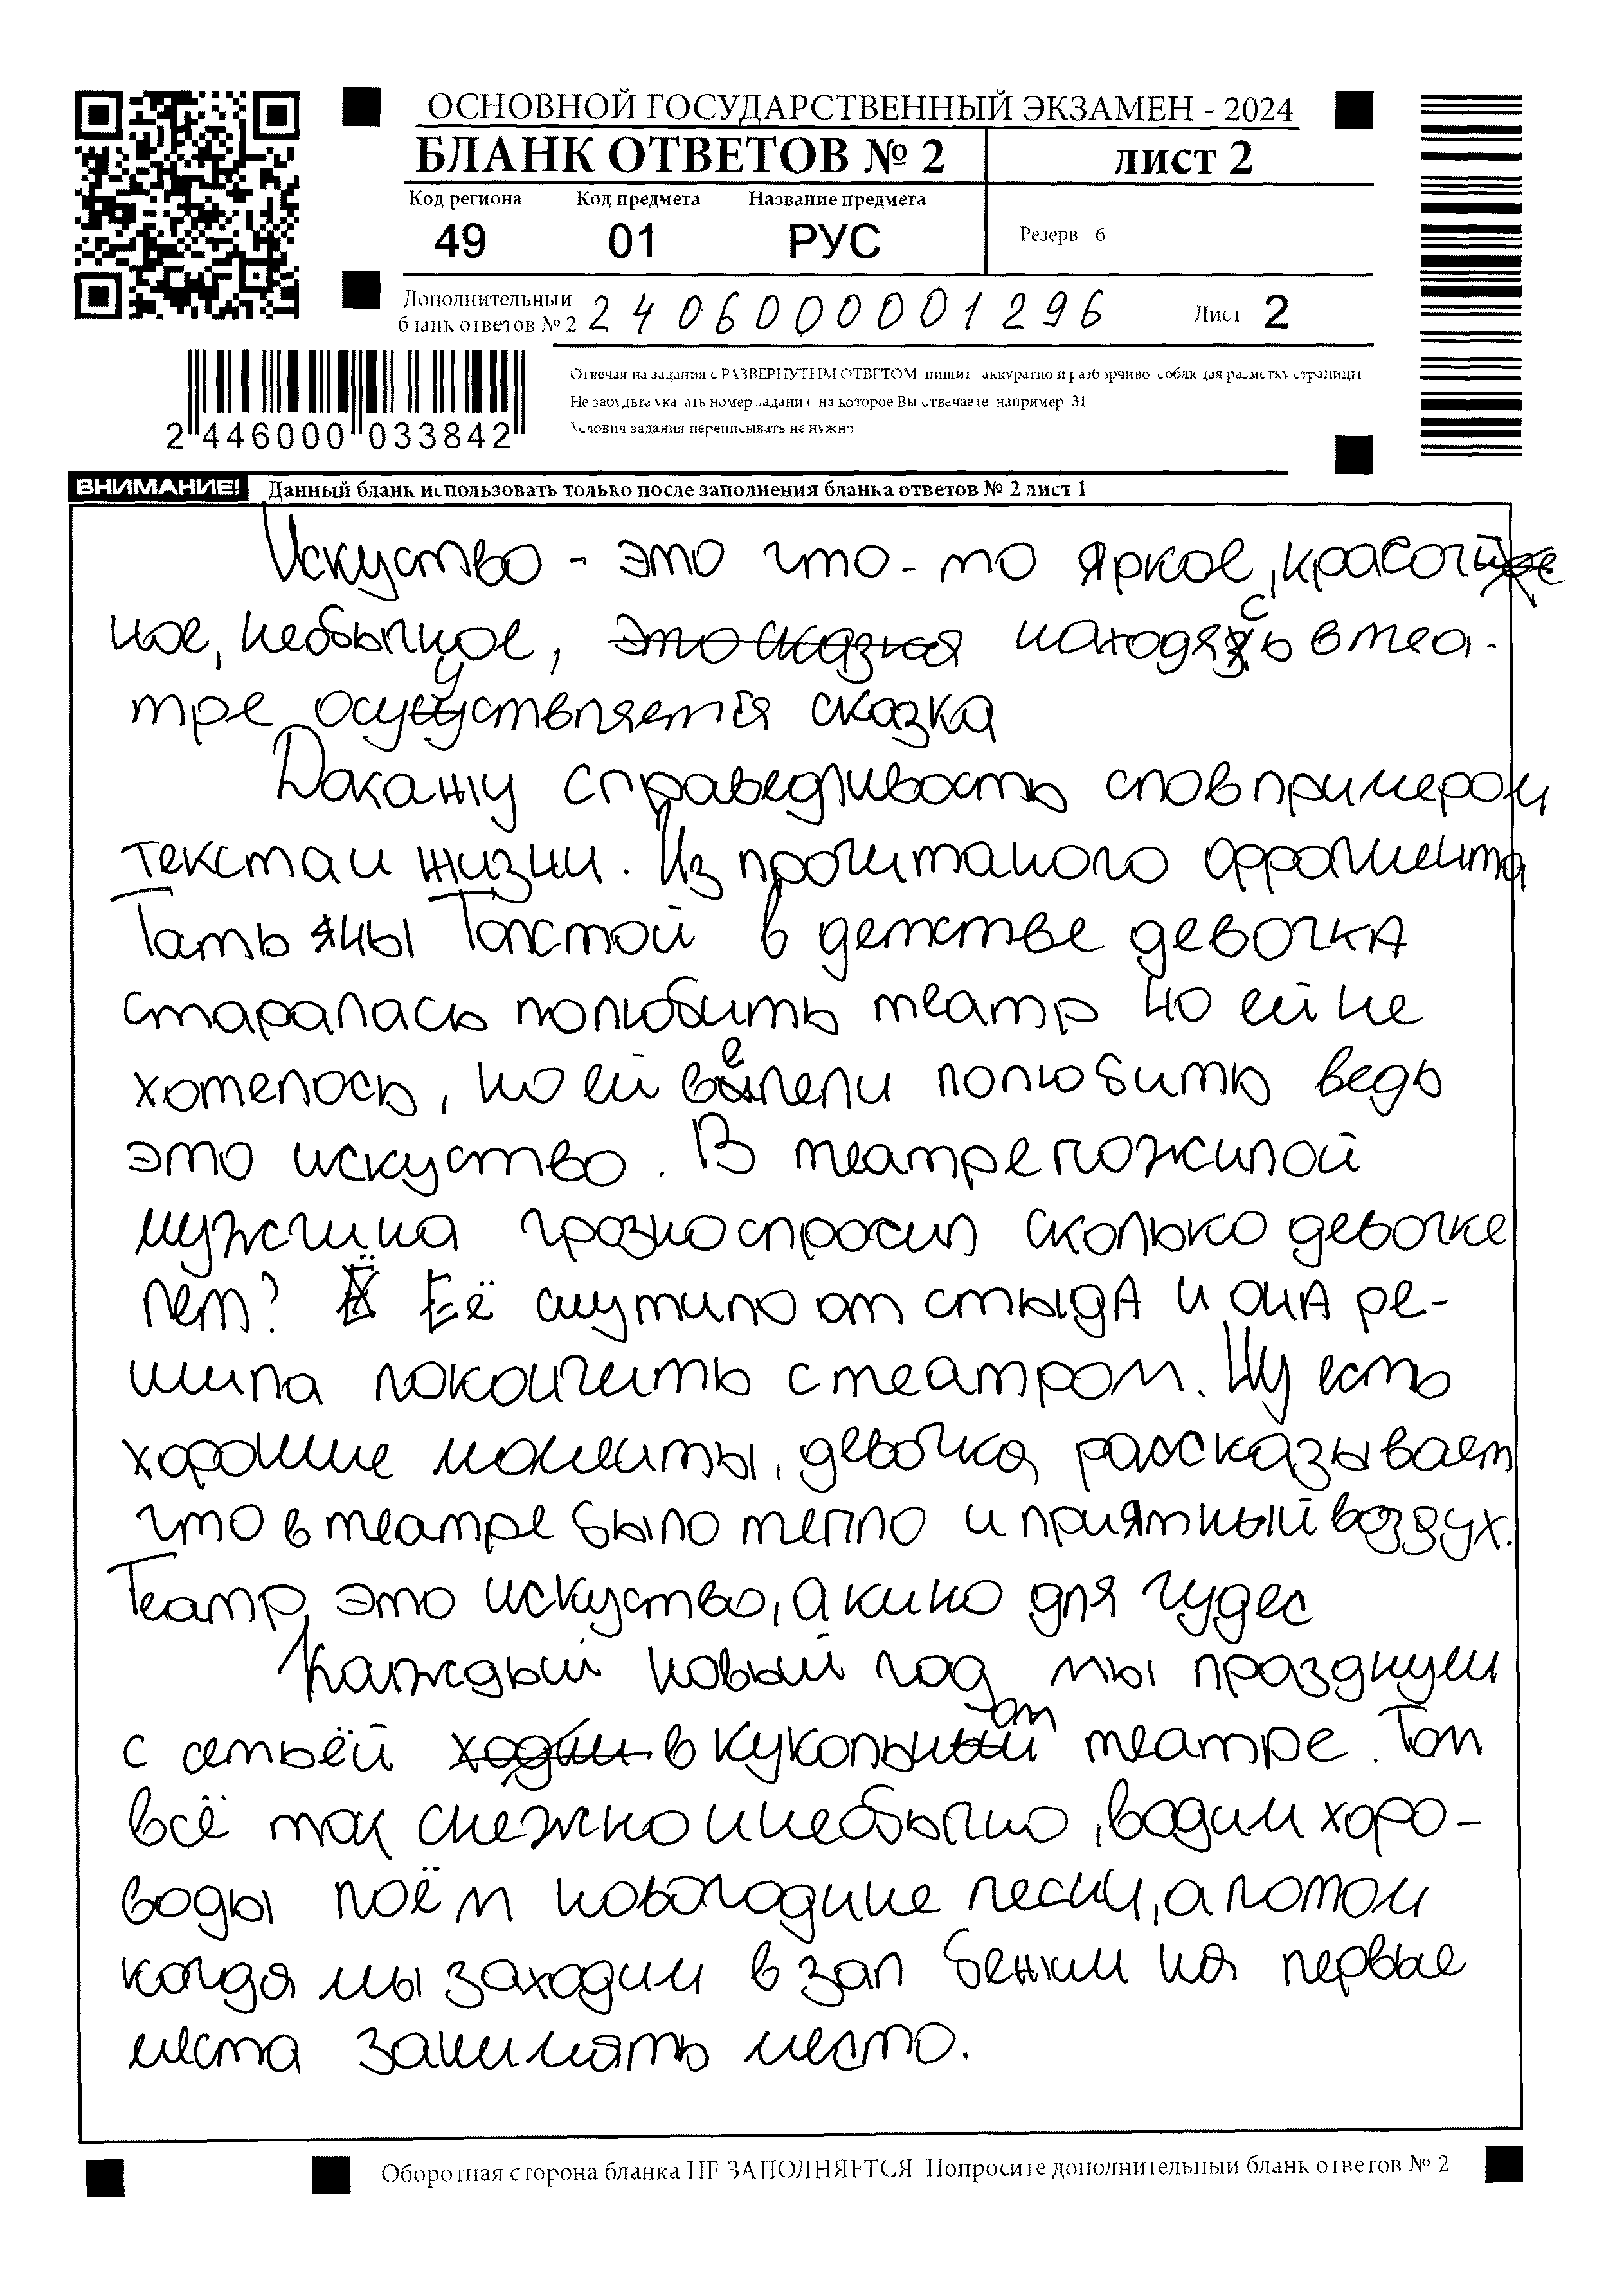 ОСНОВНОЙ ГОСУДАРСТВЕННЫЙ ЭКЗАМЕН - 2024
БЛАНК ОТВЕТОВ № 2 лист 2
Код региона Код предмета Название предмета
49 01 РУС Резерв 6
Дополнительный
бланк ответов № 2 2406000001296 Лист 2
Отвечая на задания с РАЗВЕРНУТЫМ ОТВЕТОМ пишите аккуратно и разборчиво соблюдая разметку страницы
Не забудьте указать номер задания на которое Вы отвечаете например 31
Условия задания переписывать не нужно
2 446000 033842
ВНИМАНИЕ! Данный бланк использовать только после заполнения бланка ответов № 2 лист 1
Искуство - это что-то яркое, красоч
ное, необычное, это сказка находясь в теа-
тре осуществляется сказка
Докажу справедливость слов примером
текста и жизни. Из прочитаного фрагмента
Татьяны Толстой в детстве девочка
старалась полюбить театр но ей не
хотелось, но ей велели полюбить ведь
это искуство. В театре пожилой
мужчина грозно спросил сколько девочке
лет? Её смутило от стыда и она ре-
шила покончить с театром. Ну есть
хорошие моменты, девочка рассказывает
что в театре было тепло и приятный воздух.
Театр, это искуство, а кино для чудес
Каждый новый год мы празднуем
с семьёй ходим в кукольном театре. Там
всё так снежно и необычно, водим хоро-
воды поём новогодние песни, а потом
когда мы заходим в зал бежим на первые
места занимать место.
Оборотная сторона бланка НЕ ЗАПОЛНЯЕТСЯ Попросите дополнительный бланк ответов № 2